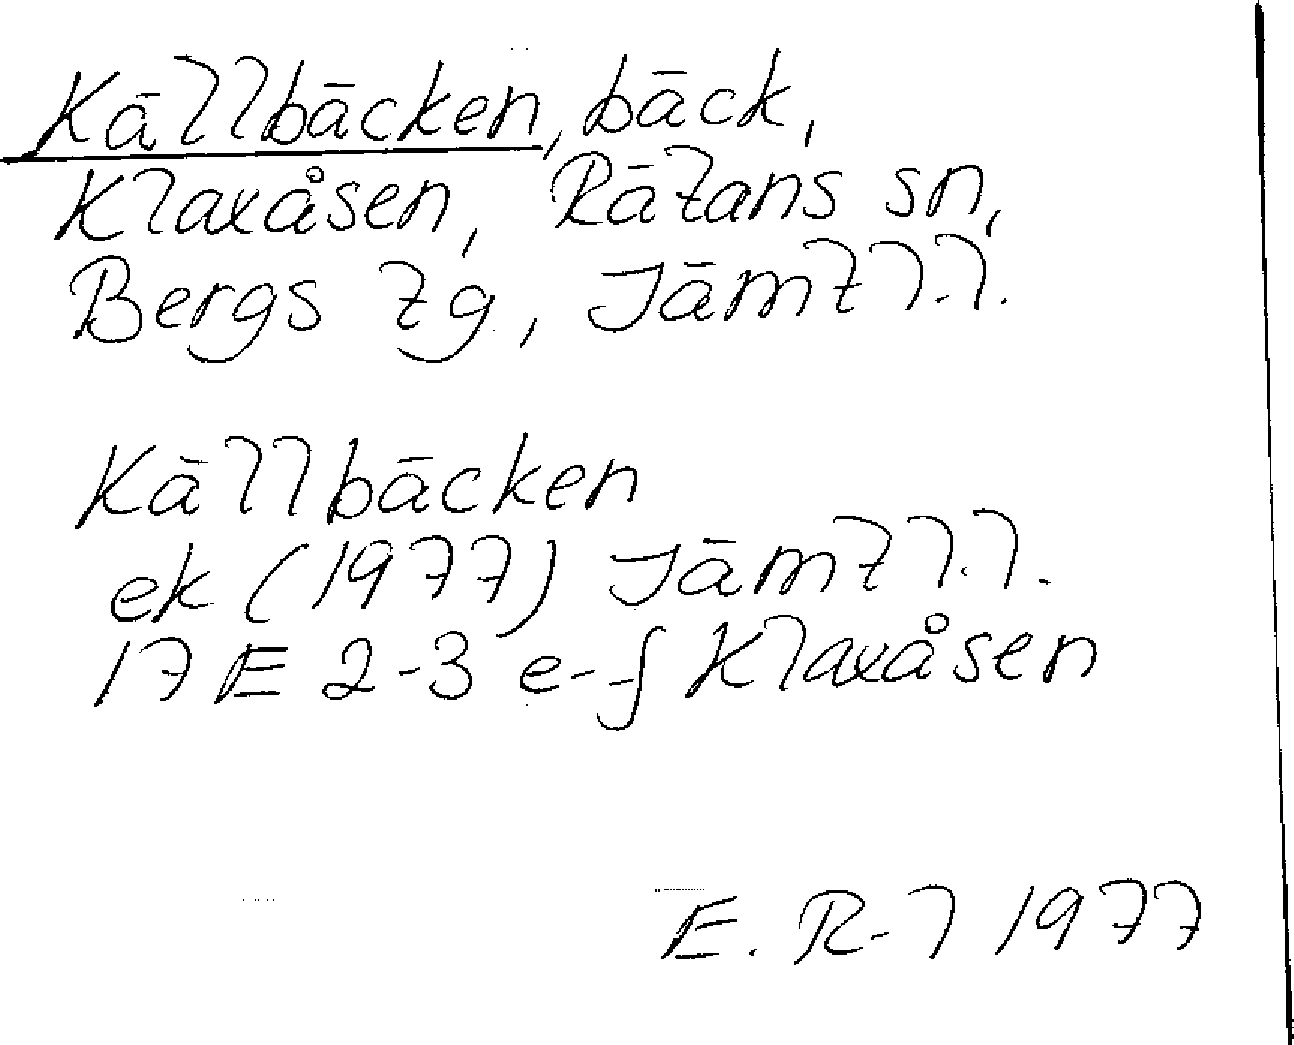 Källbäcken, bäck,
Klaxåsen, Rätans sn,
Bergs tg, Jämtl.l.
Källbäcken
ek (1977) Jämtl.l.
17 E 2-3 e-f Klaxåsen
E. R-l 1977